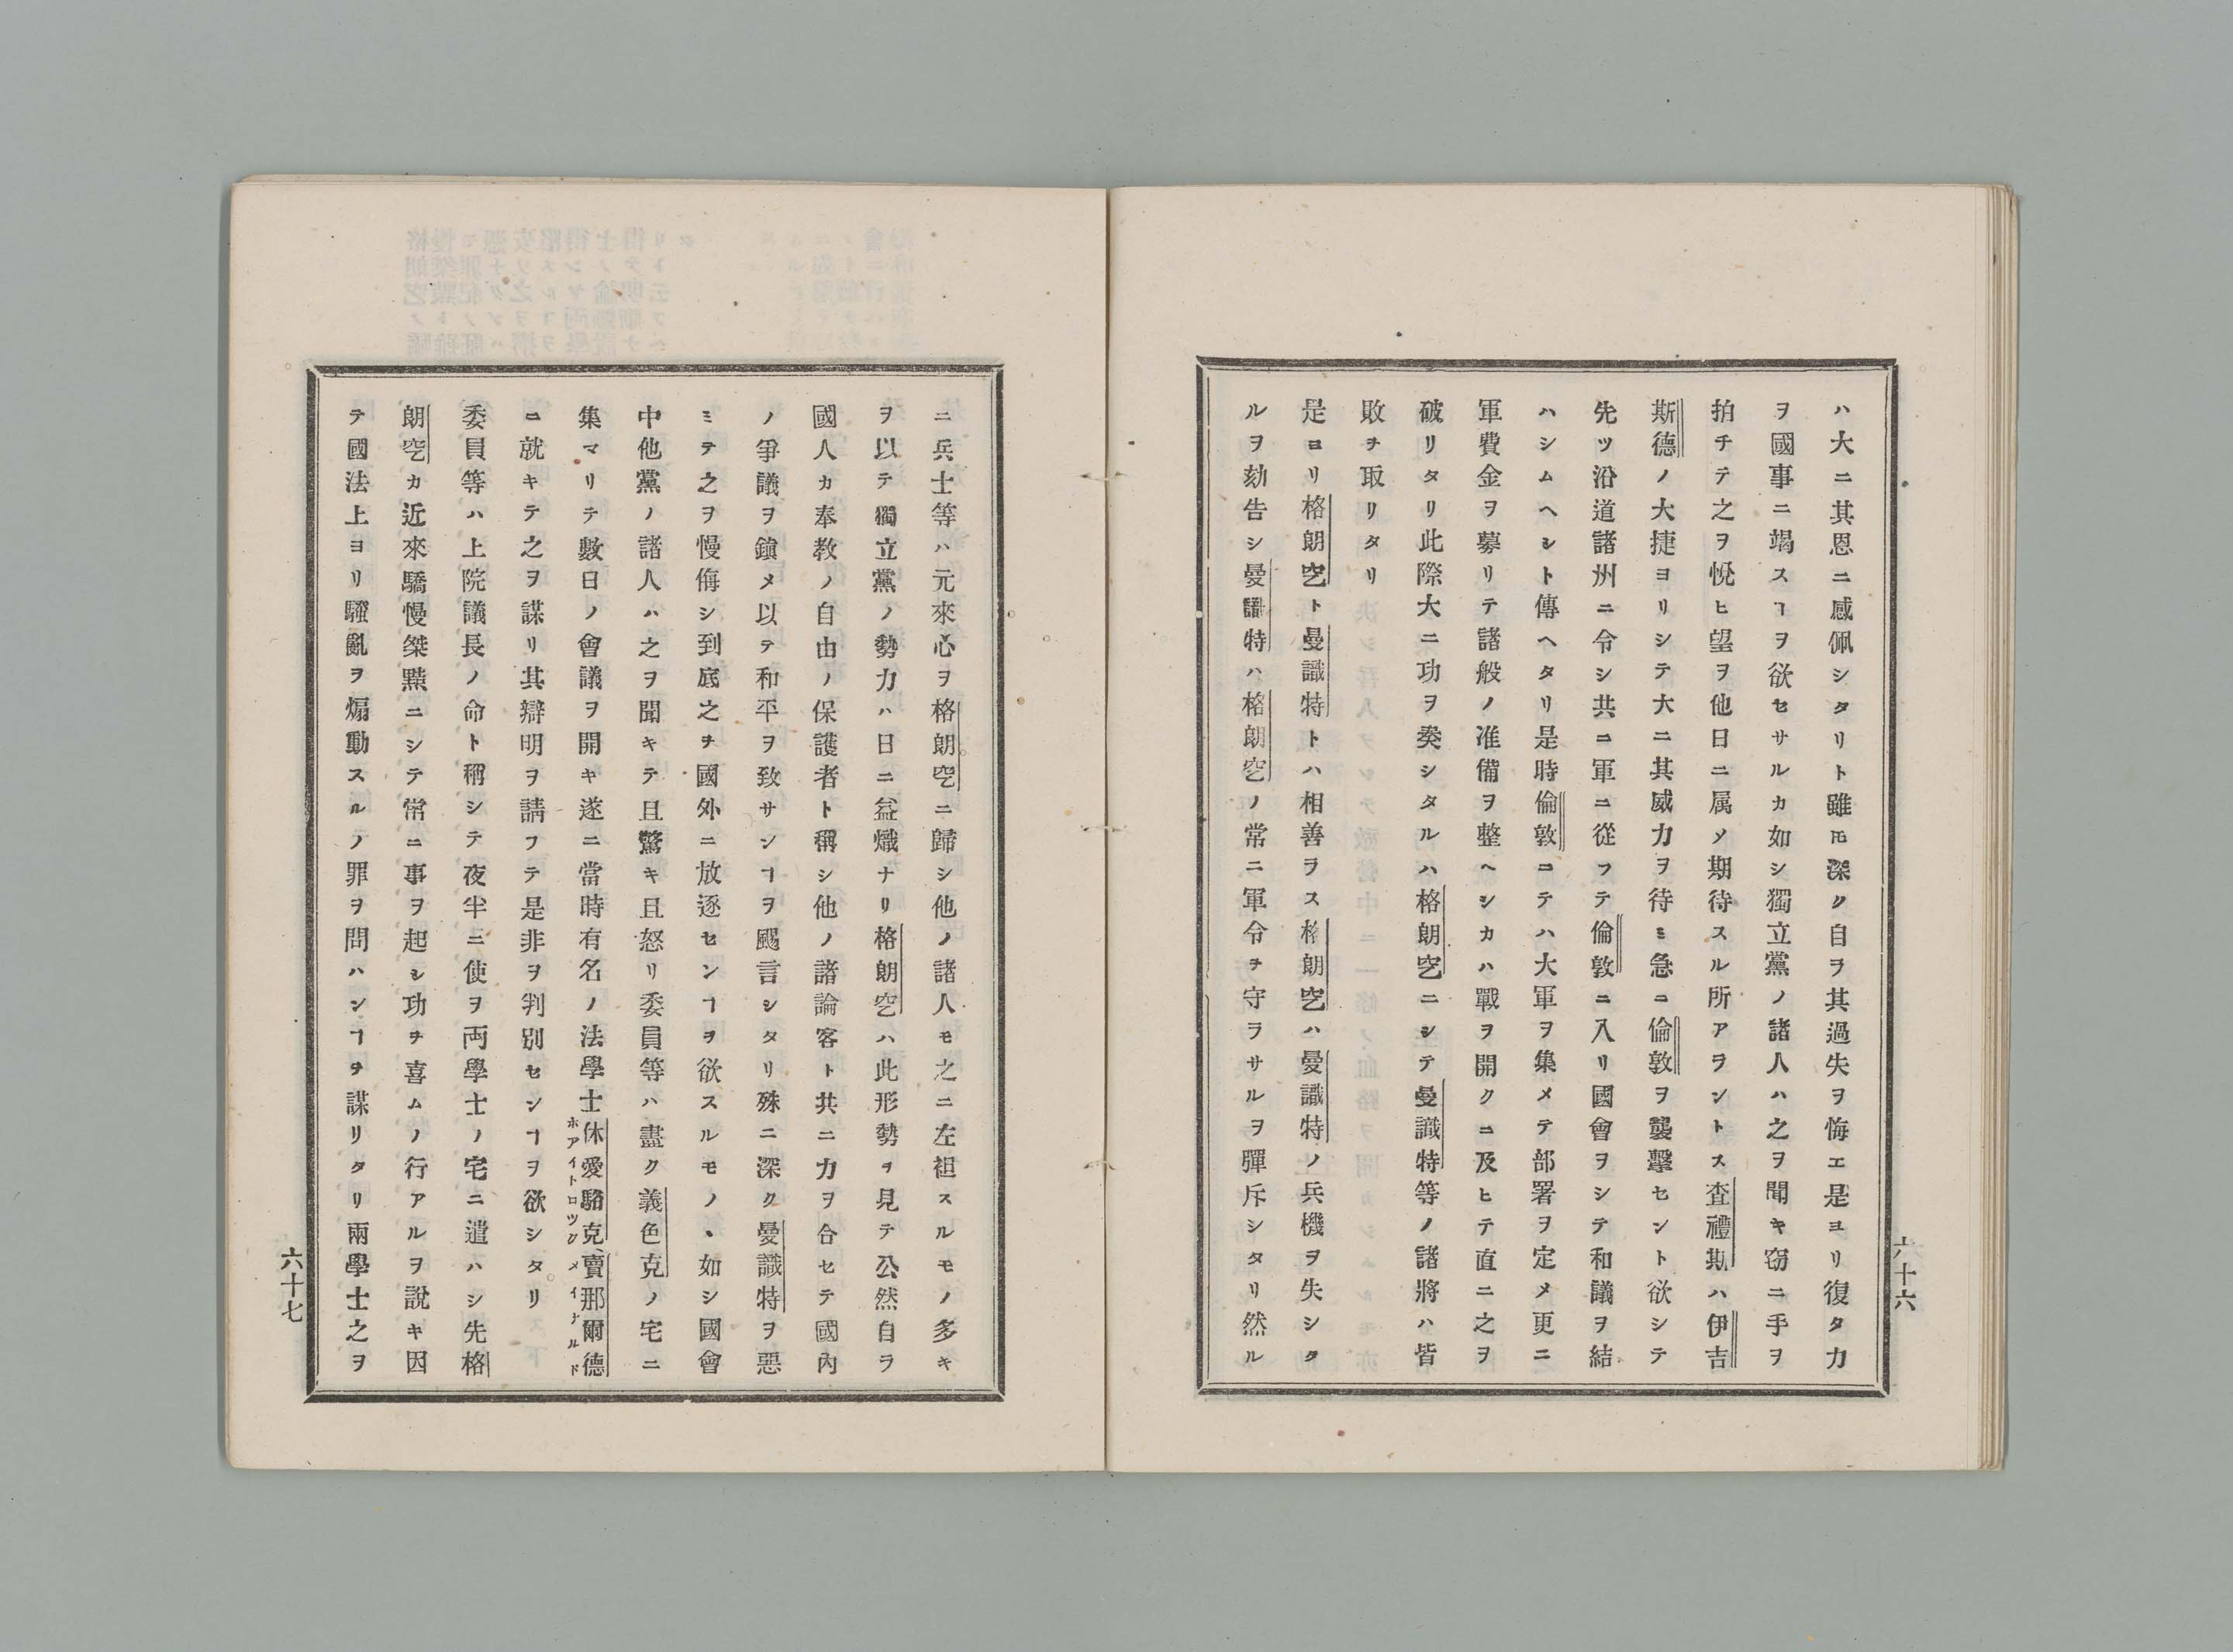 ハ大ニ其恩ニ感佩シタリト雖𪜈深ク自ヲ其過失ヲ悔エ是ヨリ復タ力
ヲ國事ニ竭スヿヲ欲セサルカ如シ獨立黨ノ諸人ハ之ヲ聞キ窃ニ手ヲ
拍チテ之ヲ悅ヒ望ヲ他日ニ属メ期待スル所アラントス査禮斯ハ伊吉
斯德ノ大捷ヨリシテ大ニ其威力ヲ待ミ急ニ倫敦ヲ襲擊セント欲シテ
先ツ沿道諸州ニ令シ共ニ軍ニ從フテ倫敦ニ入リ國會ヲシテ和議ヲ結
ハシムヘシト傳ヘタリ是時倫敦ニテハ大軍ヲ集メテ部署ヲ定メ更ニ
軍費金ヲ募リテ諸般ノ准備ヲ整ヘシカハ戰ヲ開クニ及ヒテ直ニ之ヲ
破リタリ此際大ニ功ヲ奏シタルハ格朗空ニシテ曼識特等ノ諸將ハ皆
敗ヲ取リタリ
是ヨリ格朗空ト曼識特トハ相善ヲス格朗空ハ曼識特ノ兵機ヲ失シタ
ルヲ劾告シ曼識特ハ格朗空ノ常ニ軍令ヲ守ラサルヲ彈斥シタリ然ル
六十六
ニ兵士等ハ元來心ヲ格朗空ニ歸シ他ノ諸人モ之ニ左袒スルモノ多キ
ヲ以テ獨立黨ノ勢力ハ日ニ益熾ナリ格朗空ハ此形勢ヲ見テ公然自ラ
國人カ奉敎ノ自由ノ保護者ト稱シ他ノ諸論客ト共ニ力ヲ合セテ國內
ノ爭議ヲ鎭メ以テ和平ヲ致サンヿヲ颺言シタリ殊ニ深ク曼識特ヲ惡
ミテ之ヲ慢侮シ到底之ヲ國外ニ放逐センヿヲ欲スルモノヽ如シ國會
中他黨ノ諸人ハ之ヲ聞キテ且驚キ且怒リ委員等ハ盡ク義色克ノ宅ニ
集マリテ數日ノ會議ヲ開キ遂ニ當時有名ノ法學士休愛駱克、賣那爾德
ホアイトロツク メイナルド
ニ就キテ之ヲ謀リ其辯明ヲ請フテ是非ヲ判別センヿヲ欲シタリ
委員等ハ上院議長ノ命ト稱シテ夜半ニ使ヲ両學士ノ宅ニ遣ハシ先格
朗空カ近來驕慢桀黠ニシテ常ニ事ヲ起シ功ヲ喜ムノ行アルヲ說キ因
テ國法上ヨリ騷亂ヲ煽動スルノ罪ヲ問ハンヿヲ謀リタリ兩學士之ヲ
六十七